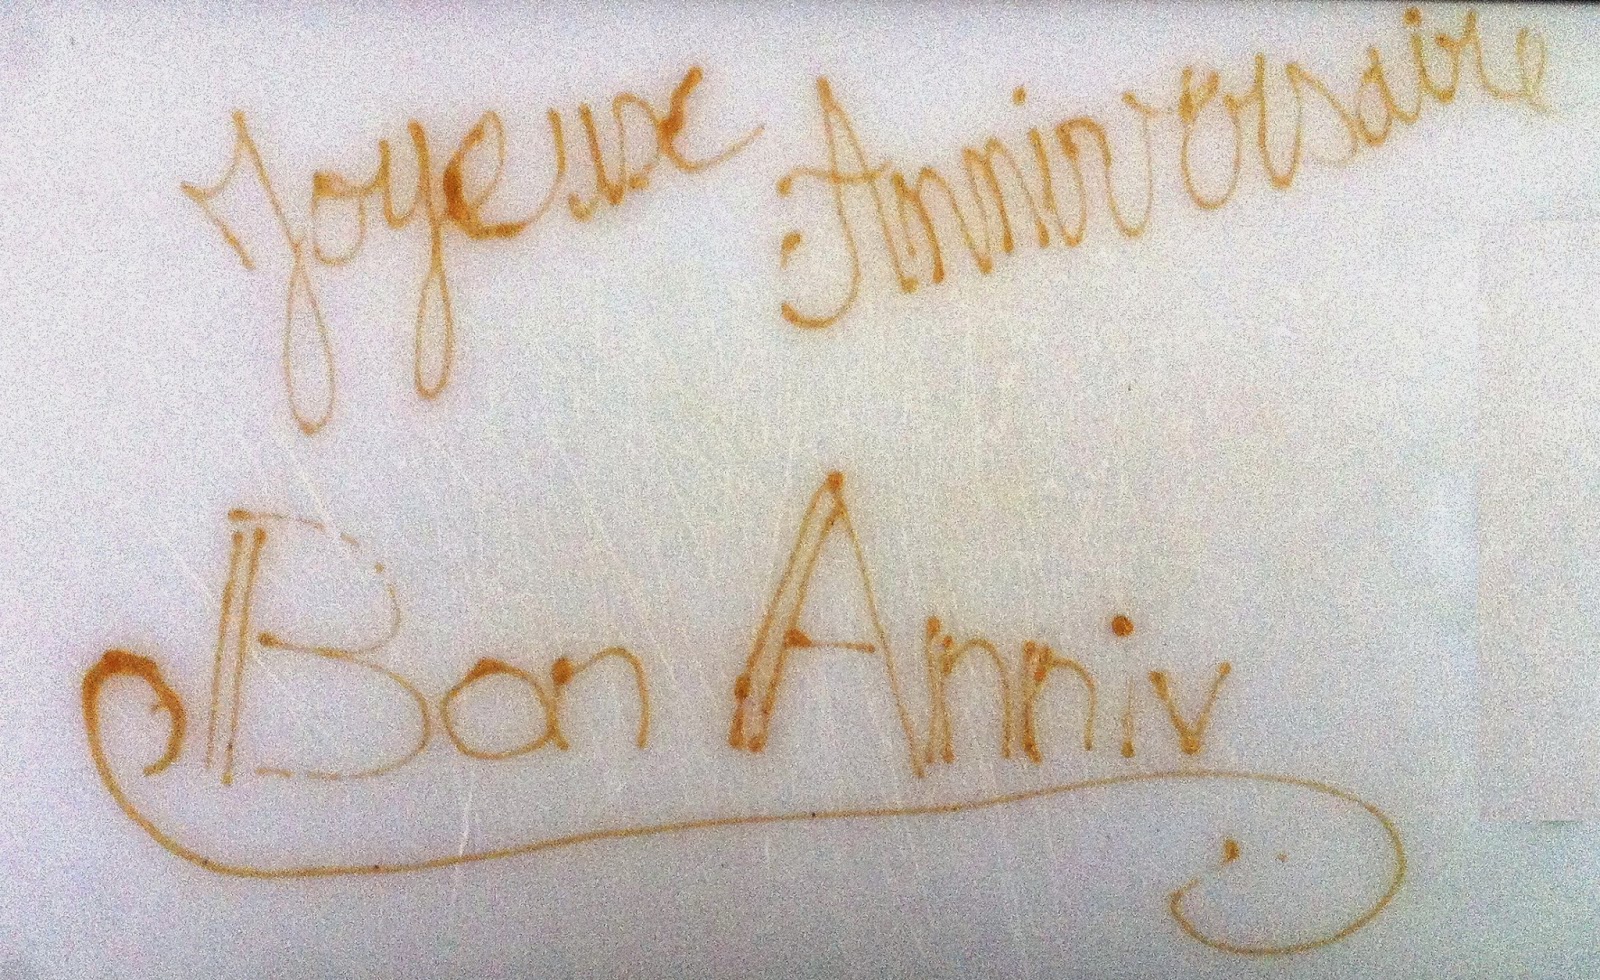 Joyeuse Anniversaire
Bon Anniv